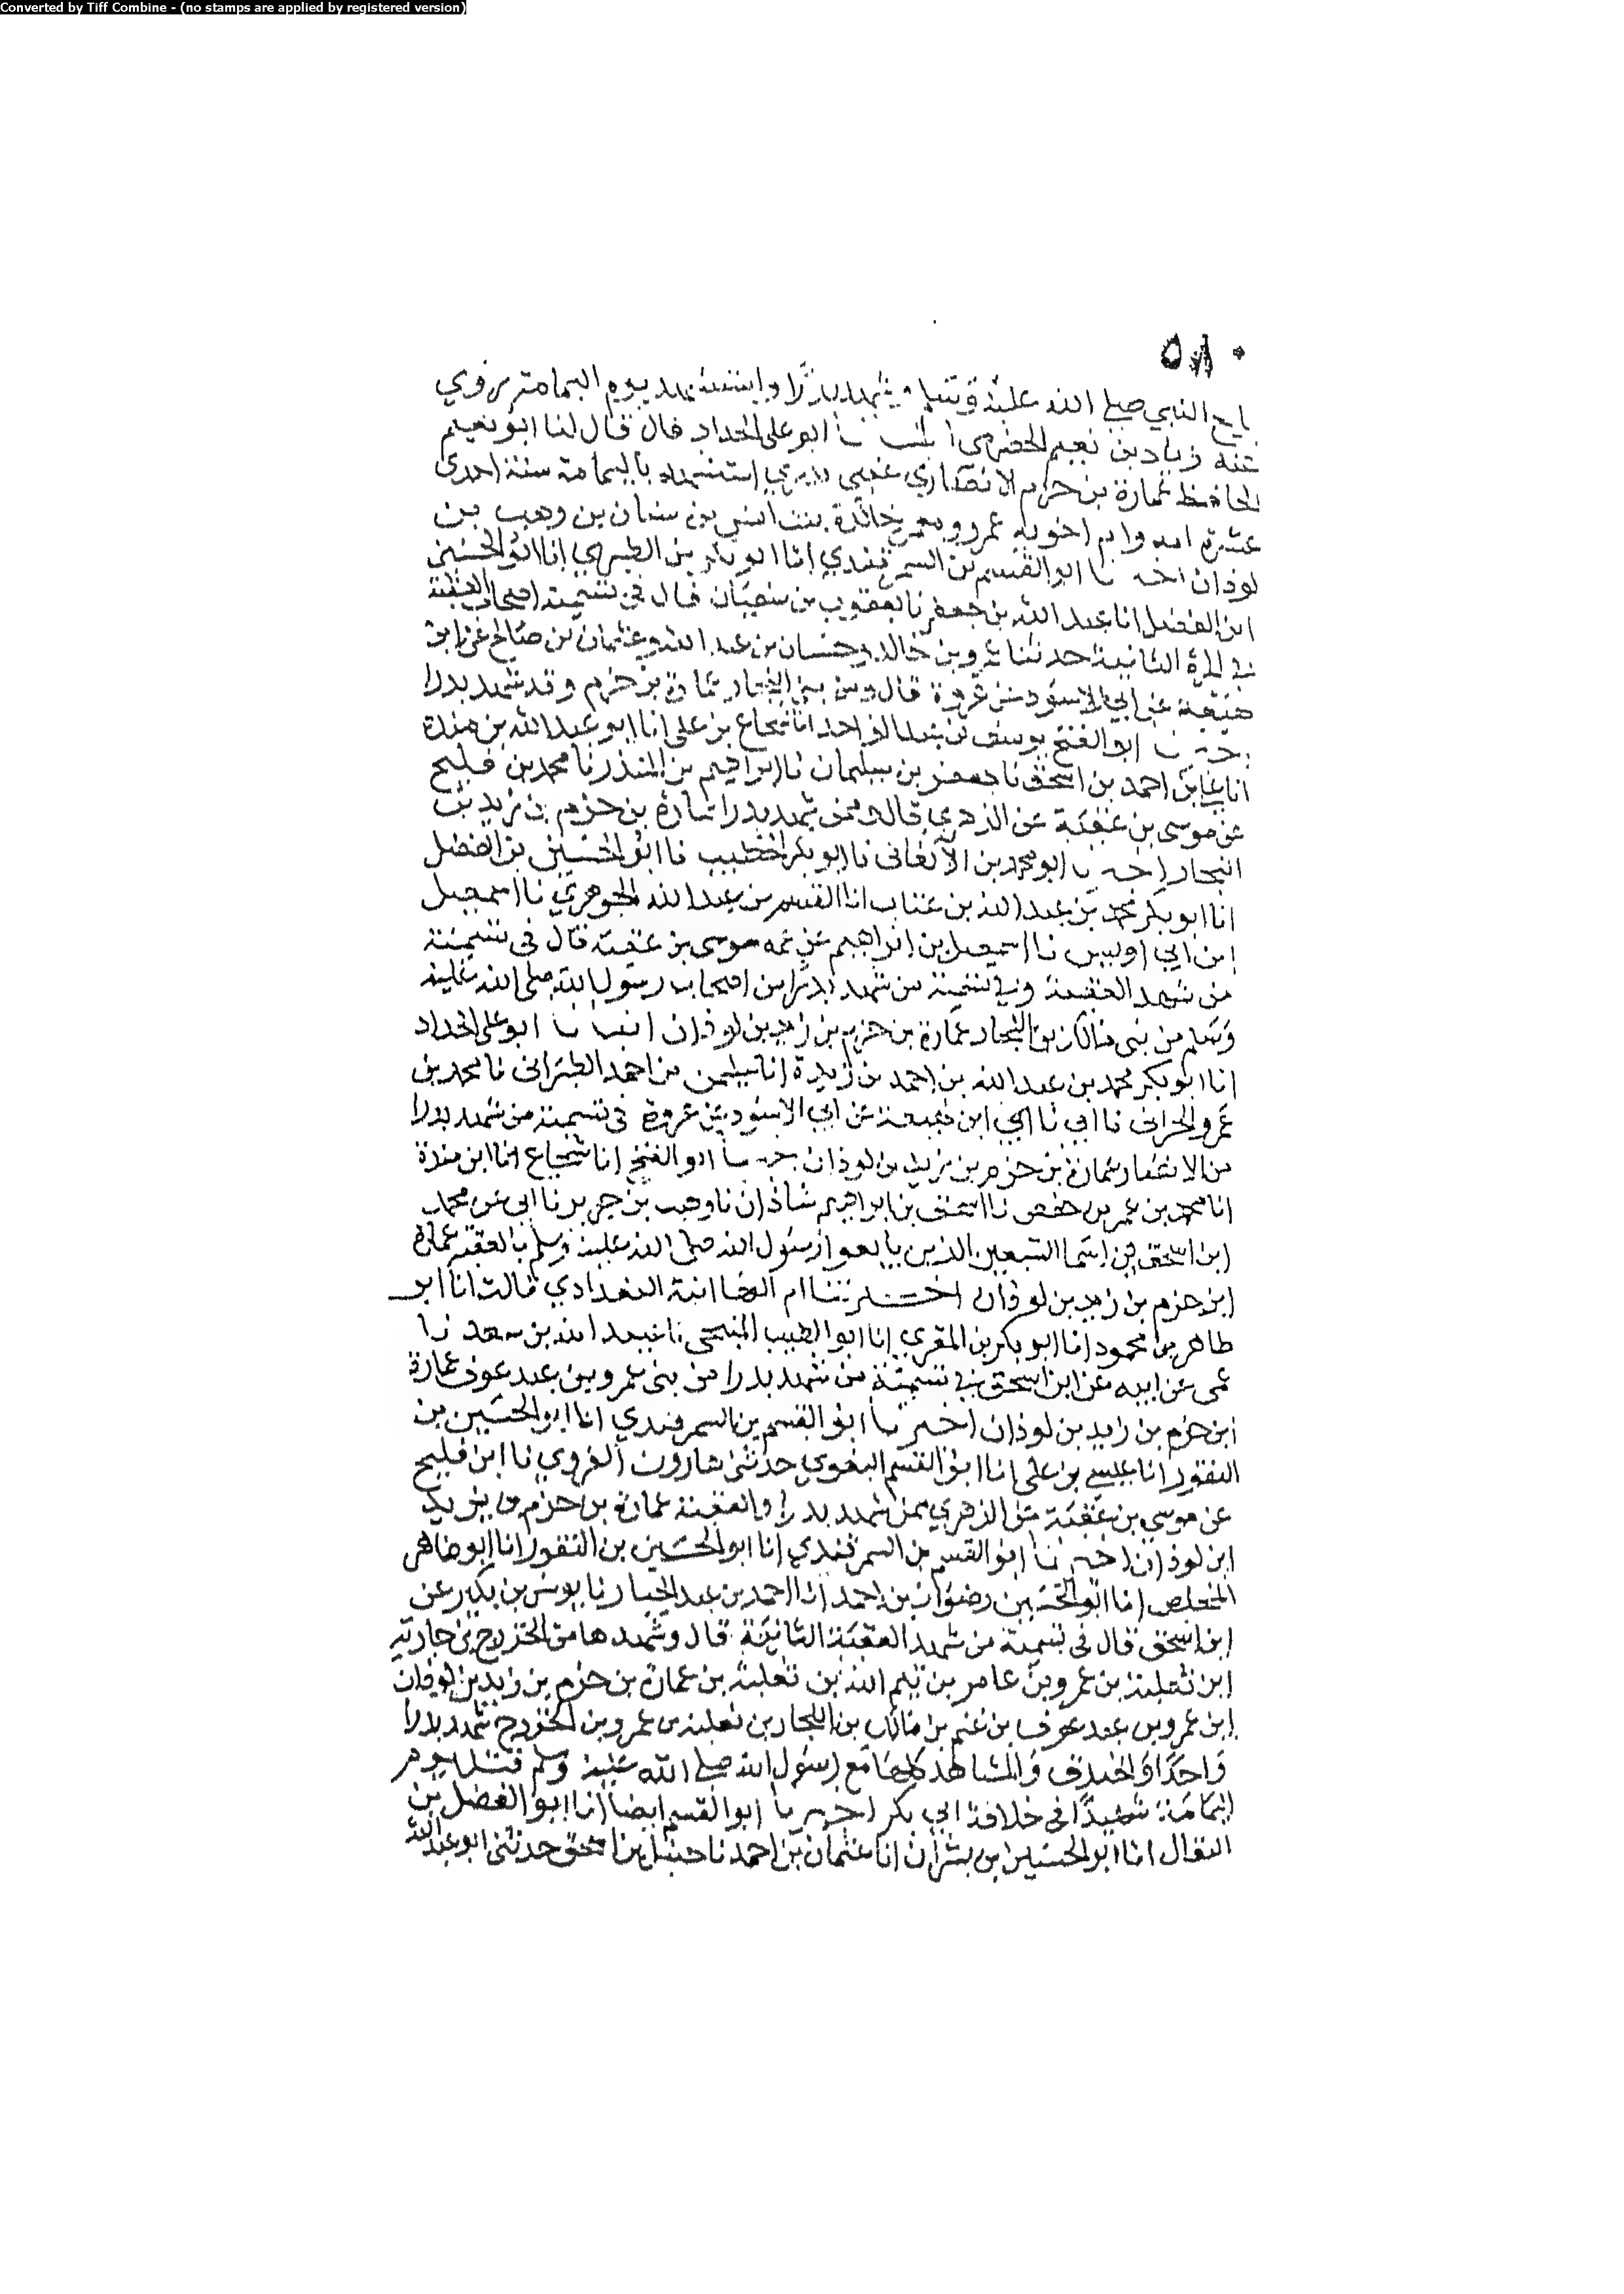 Converted by Tiff Combine - (no stamps are applied by registered version)
٥٨٠
بايع النبي صلى الله عليه وسلم شهد بدرا واستشهد يوم اليمامة روى
عنه زياد بن نعيم الحضرمي انبانا ابو على الحداد قال قال لنا ابو نعيم
الحافظ عمارة بن حزم الانصاري عقبي بدري استشهد باليمامة سنة احدى
عشرة امه وام اخويه عمرو ومعمر خالدة بنت انس بن سنان بن وهب بن
لوذان اخبرنا ابو القسم بن السمرقندي انا ابو بكر بن الطبري انا ابو الحسين
ابن الفضل انا عبد الله بن جعفر نا يعقوب بن سفيان قال في تسمية اصحاب العقبة
في المرة الثانية حدثنا عمرو بن خالد وحسان بن عبد الله وعثمان بن صالح عن ابن
لهيعة عن ابي الاسود عن عروة قال ومن بني النجار عمارة بن حزم وقد شهد بدرا
اخبرنا ابو الفتح يوسف بن عبد الواحد انا شجاع بن على انا ابو عبد الله بن مندة
انا احمد بن اسحق نا جعفر بن سليمان نا ابراهيم بن المنذر نا محمد بن فليح
عن موسى بن عقبة عن الزهري قال وممن شهد بدرا عمارة بن حزم بن زيد بن
النجار اخبرنا ابو محمد بن الاكفانى نا ابو بكر الخطيب نا ابو الحسين بن الفضل
انا ابو بكر محمد بن عبد الله بن عتاب انا القسم بن عبد الله الجوهري نا اسمعيل
ابن ابي اويس نا اسمعيل بن ابراهيم عن عمه موسى بن عقبة قال في تسمية
من شهد العقبة وفي تسمية من شهد بدرا من اصحاب رسول الله صلى الله عليه
وسلم من بنى مالك بن النجار عمارة بن حزم بن زيد بن لوذان انبانا ابو على الحداد
انا ابو بكر محمد بن عبد الله بن احمد بن ريدة انا سليمن بن احمد الطبرانى نا محمد بن
عمرو الحرانى نا ابى نا ابن لهيعة عن ابي الاسود عن عروة في تسمية من شهد بدرا
من الانصار عمارة بن حزم بن زيد بن لوذان اخبرنا ابو الفتح انا شجاع انا ابن مندة
انا محمد بن عمر بن حفص نا اسحق بن ابراهيم شاذان نا وهب بن جرير نا ابى عن محمد
ابن اسحق في اسما السبعين الذين بايعوا رسول الله صلى الله عليه وسلم بالعقبة عمارة
ابن حزم بن زيد بن لوذان اخبرتنا ام البها ابنة البغدادي قالت انا ابو
طاهر بن محمود انا ابو بكر بن المقري انا ابو الطيب المنبجي نا عبيد الله بن سعد نا
عمى عن ابيه عن ابن اسحق في تسمية من شهد بدرا من بنى عمرو بن عبد عوف عمارة
ابن حزم بن زيد بن لوذان اخبرنا ابو القسم بن السمرقندي انا ابو الحسين بن
النقور انا عيسى بن على انا ابو القسم البغوي حدثني هارون الفروي نا ابن فليح
عن موسى بن عقبة عن الزهري ممن شهد بدرا والعقبة عمارة بن حزم بن يزيد
ابن لوذان اخبرنا ابو القسم بن السمرقندي انا ابو الحسين بن النقور انا ابو طاهر
المخلص انا ابو الحسين رضوان بن احمد انا احمد بن عبد الجبار نا يونس بن بكير عن
ابن اسحق قال في تسمية من شهد العقبة الثانية قال وشهدها من الخزرج بن حارثة
ابن ثعلبة بن عمرو بن عامر بن تيم الله بن ثعلبة بن عمارة بن حزم بن زيد بن لوذان
ابن عمرو بن عبد عوف بن غنم بن مالك بن النجار بن ثعلبة بن عمرو بن الخزرج شهد بدرا
واحدا والخندق والمشاهد كلها مع رسول الله صلى الله عليه وسلم قتل يوم
اليمامة شهيدا في خلافة ابي بكر اخبرنا ابو القسم ايضا انا ابو الفضل بن
البقال انا ابو الحسين بن بشران انا عثمان بن احمد نا حنبل بن اسحق حدثنى ابو عبد الله